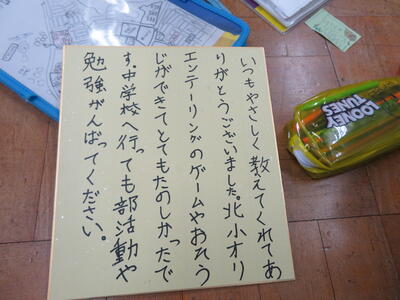 いつもやさしく教えてくれてあ
りがとうございました。北小オリ
エンテーリングのゲームやおそう
じができてとてもたのしかったで
す。中学校へ行っても部活動や
勉強がんばってください。
LOONEY
TUNES